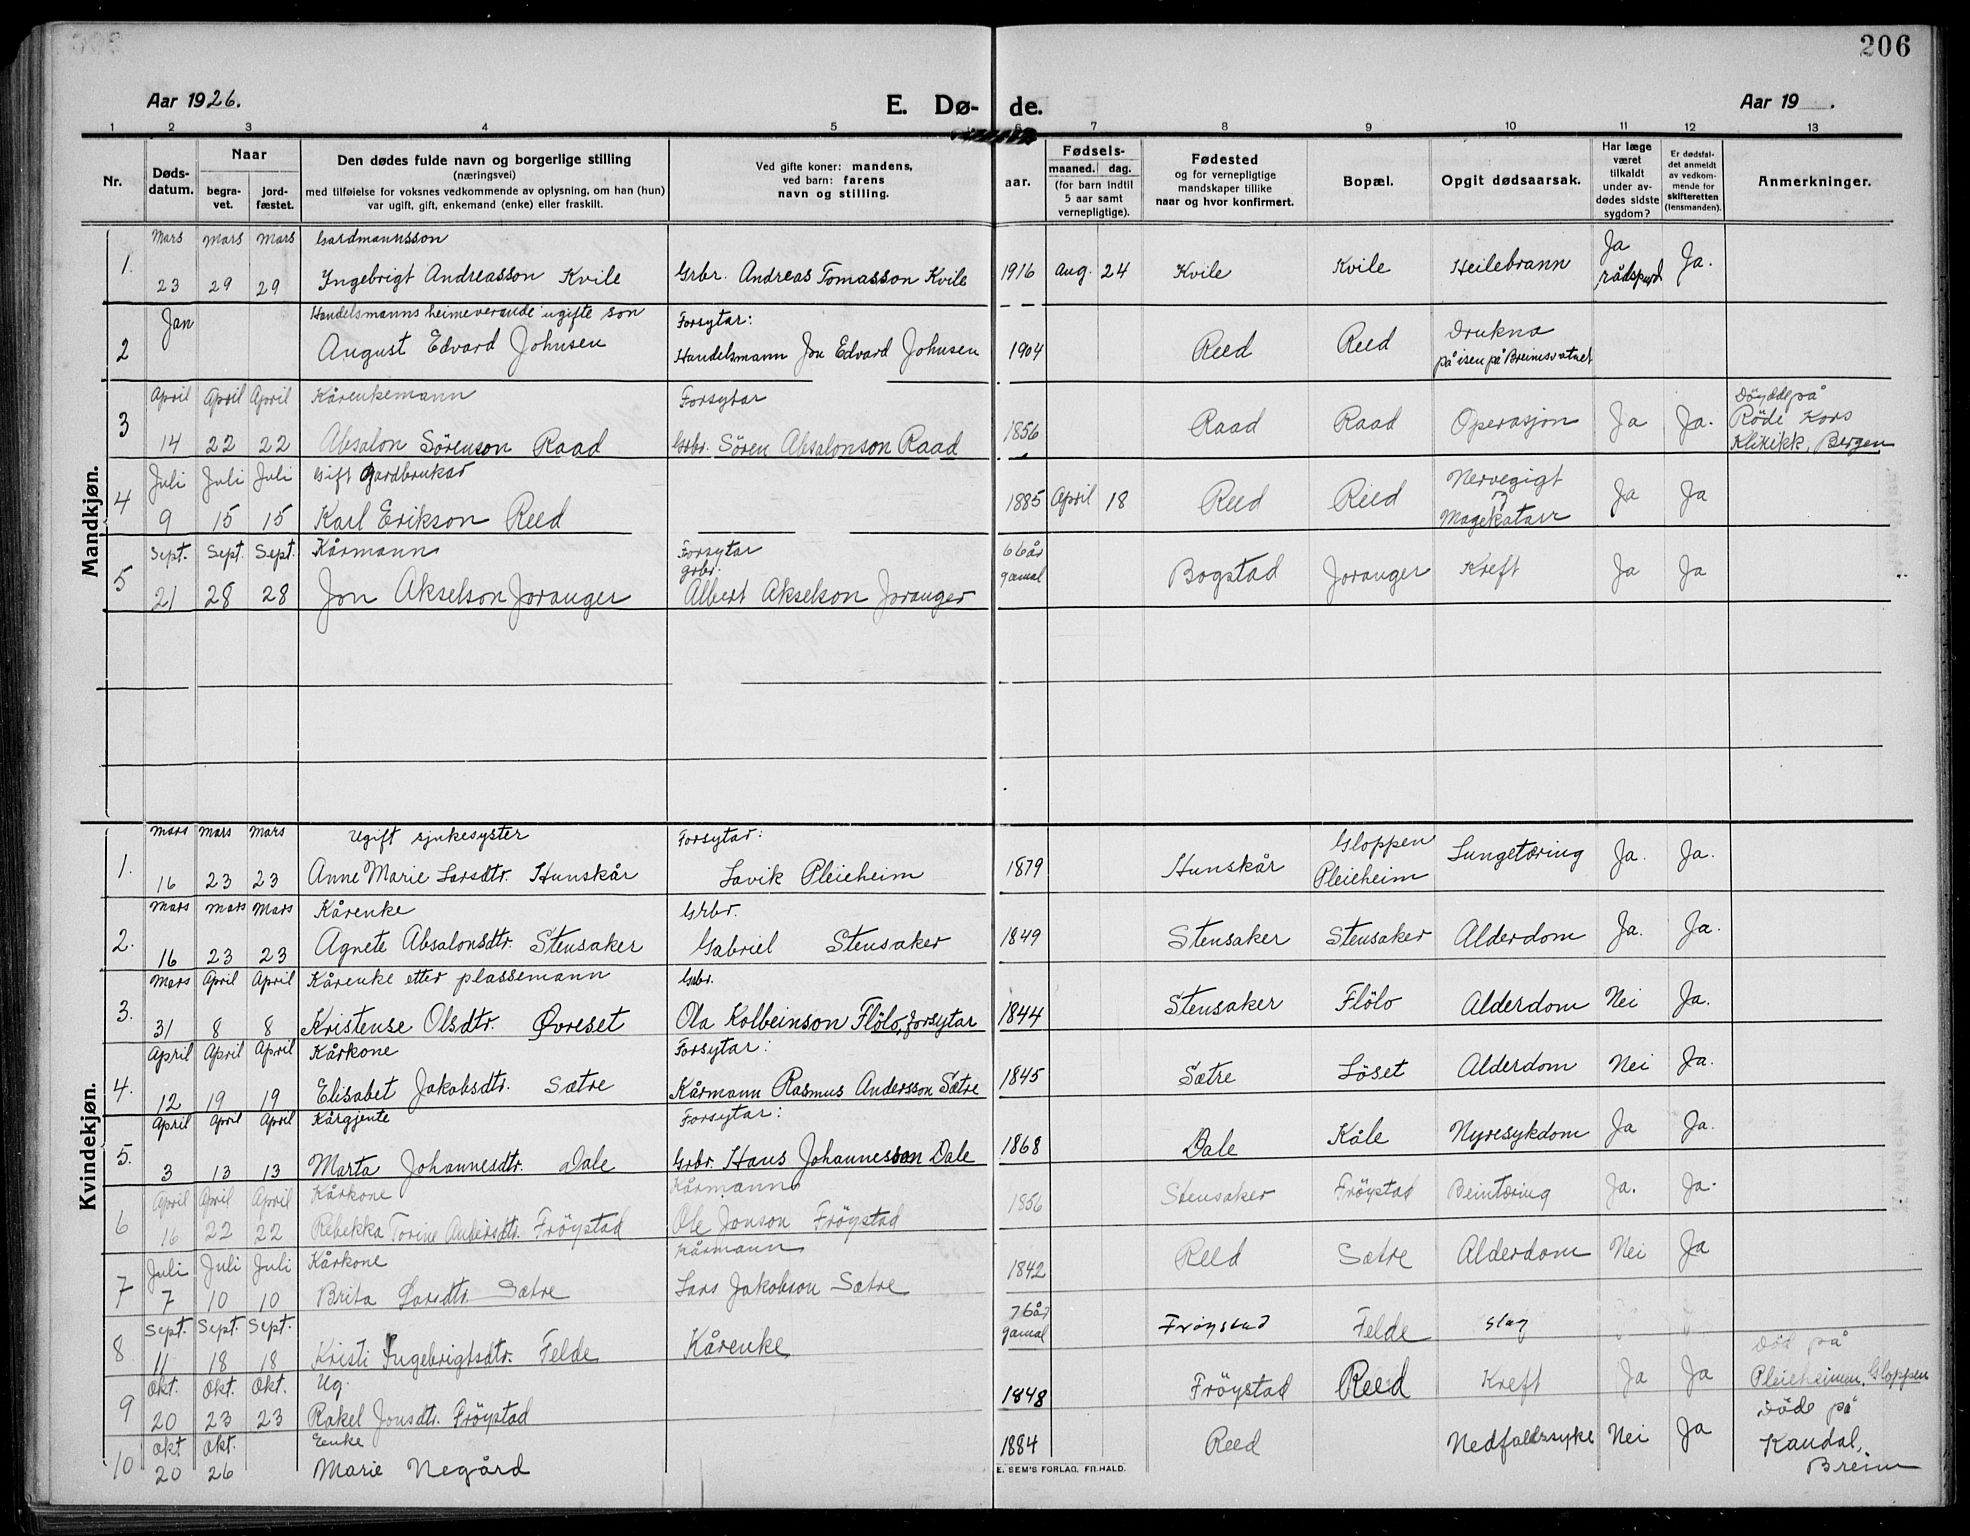 206
Aar 1926. E. Dø- de. Aar 19 .
1 2 3 4 5 6 7 8 9 10 11 12 13
Nr.
Døds-
datum.
Naar
begra-
vet.
jord-
fæstet.
Den dødes fulde navn og borgerlige stilling
(næringsvei)
med tilføielse for voksnes vedkommende av oplysning, om han (hun)
var ugift, gift, enkemand (enke) eller fraskilt.
Ved gifte koner: mandens,
ved barn: farens
navn og stilling.
Fødsels-
aar.
maaned. dag.
(for barn indtil
5 aar samt
vernepligtige).
Fødested
og for vernepligtige
mandskaper tillike
naar og hvor konfirmert.
Bopæl.
Opgit dødsaarsak.
Har læge
været
tilkaldt
under av-
dødes sidste
sygdom?
Er dødsfal-
det anmeldt
av vedkom-
mende for
skifteretten
(lensmanden).
Anmerkninger.
Mandkjøn.
Mars Mars Mars Gardmannsson Ja
1. 23 29 29 Ingebrigt Andreasson Kvile Grbr. Andreas Tomasson Kvile 1916 Aug. 24 Kvile Kvile Heilebrann rådspurd Ja.
Jan Handelsmanns heimeverande ugifte son Forsytar: Drukna
2 August Edvard Johnsen Handelsmann Jon Edvard Johnsen 1904 Reed Reed på isen på Breimsvatnet
April April April Kårenkemann Forsytar Döydde på
3 14 22 22 Absalon Sørenson Raad Grbr. Søren Absalonson Raad 1856 Raad Raad Operasjon Ja Ja. Röde Kors
Klinikk, Bergen
Juli Juli Juli Gift Gardbrukar Nervegigt
4 9 15 15 Karl Erikson Reed 1885 April 18 Reed Reed Magekatarr Ja Ja
Sept. Sept. Sept. Kårmann Forsytar 66 år
grbr. gamal
5 21 28 28 Jon Akselson Joranger Albert Akselson Joranger Bogstad Joranger Kreft Ja Ja
Kvindekjøn.
Mars Mars Mars Ugift sjukesyster Forsytar: Gloppen
1. 16 23 23 Anne Marie Larsdtr. Hunskår Lavik Pleieheim 1879 Hunskår Pleieheim Lungetæring Ja. Ja.
Mars Mars Mars Kårenke Grbr.
2. 16 23 23 Agnete Absalonsdtr. Stensaker Gabriel Stensaker 1849 Stensaker Stensaker Alderdom Ja. Ja.
Mars April April Kårenke etter plassemann Grbr.
3. 31 8 8 Kristense Olsdtr. Øvreset Ola Kolbeinson Flölo, forsytar 1844 Stensaker Flölo Alderdom Nei Ja.
April April April Kårkone Forsytar:
4. 12 19 19 Elisabet Jakobsdtr. Sætre Kårmann Rasmus Andersson Sætre 1845 Sætre Löset Alderdom Nei Ja.
April April April Kårgjente Forsytar:
5. 3 13 13 Marta Johannesdtr. Dale Grbr. Hans Johannesson Dale 1868 Dale Kåle Nyresykdom Ja Ja.
April April April Kårkone Kårmann
6 16 22 22 Rebekka Torine Andersdtr. Fröystad Ole Jonson Fröystad 1856 Stensaker Fröystad Beintæring Ja. Ja.
Juli Juli Juli Kårkone Kårmann
7 7 10 10 Brita Larsdtr. Sætre Lars Jakobson Sætre 1842 Reed Sætre Alderdom Nei Ja
Sept. Sept. Sept. 76 år
gamal
8 11 18 18 Kristi Ingebrigtsdtr. Felde Kårenke Fröystad Felde Slag
Okt. Okt. Okt. Ug. Död på
9 20 23 23 Rakel Jonsdtr. Fröystad 1848 Fröystad Reed Kreft Ja Ja Pleieheimen, Gloppen
Okt. Okt. Enke Döde på
10 20 26 Marie Negård 1884 Reed Nedfaldssyke Nei Ja Kandal,
Breim
E. SEM'S FORLAG, FR.HALD.